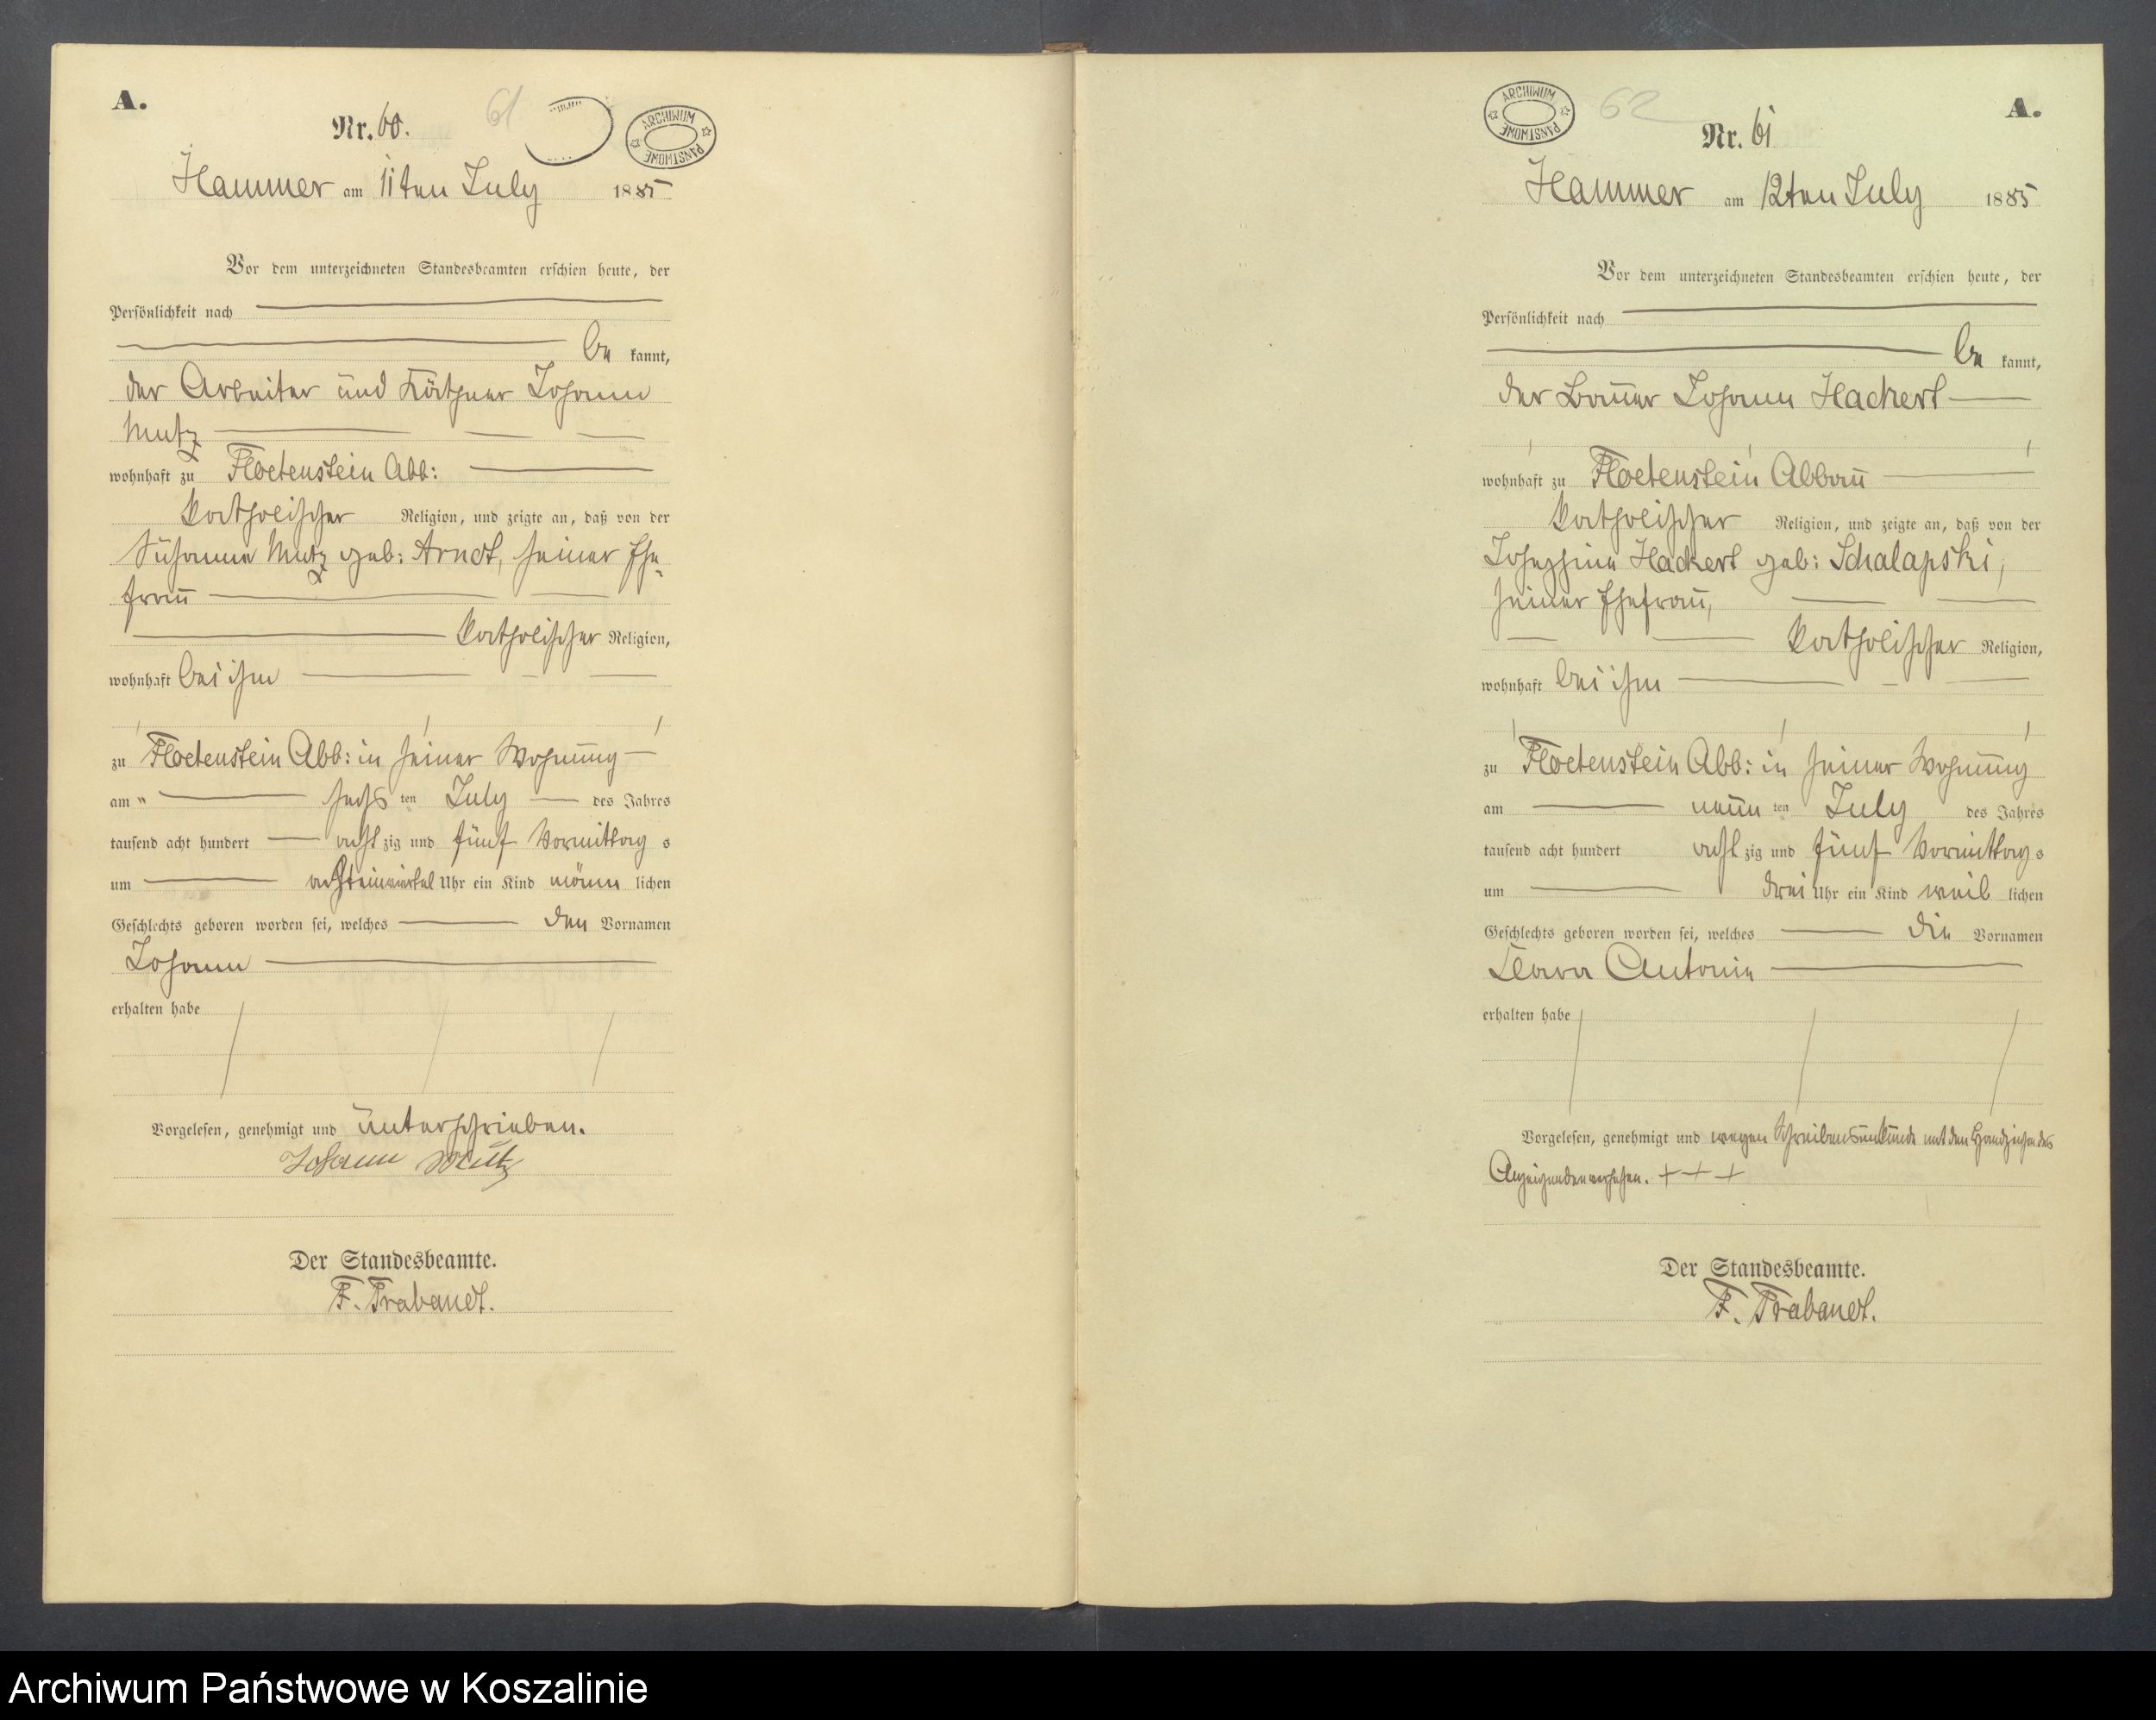 A.
Nr. 60.
61
ARCHIWUM PAŃSTWOWE
Hammer am 11ten July 1885
Vor dem unterzeichneten Standesbeamten erschien heute, der
Persönlichkeit nach
be kannt,
der Arbeiter und Käthner Johann
Mutz
wohnhaft zu Floetenstein Abb:
katholischer Religion, und zeigte an, daß von der
Susanna Mutz geb: Arndt, seiner Ehe-
frau
katholischer Religion,
wohnhaft bei ihm
zu Floetenstein Abb: in seiner Wohnung
am sechs ten July des Jahres
tausend acht hundert acht zig und fünf Vormittag s
um achteinviertel Uhr ein Kind männ lichen
Geschlechts geboren worden sei, welches den Vornamen
Johann
erhalten habe
Vorgelesen, genehmigt und unterschrieben.
Johann Mutz
Der Standesbeamte.
F. Trabandt.
ARCHIWUM PAŃSTWOWE
62
A.
Nr. 61
Hammer am 12ten July 1885
Vor dem unterzeichneten Standesbeamten erschien heute, der
Persönlichkeit nach
be kannt,
der Bauer Johann Hackert
wohnhaft zu Floetenstein Abbau
katholischer Religion, und zeigte an, daß von der
Josephine Hackert geb: Schalapski,
seiner Ehefrau,
katholischer Religion,
wohnhaft bei ihm
zu Floetenstein Abb: in seiner Wohnung
am neun ten July des Jahres
tausend acht hundert acht zig und fünf Vormittag s
um drei Uhr ein Kind weib lichen
Geschlechts geboren worden sei, welches die Vornamen
Clara Antonie
erhalten habe
Vorgelesen, genehmigt und wegen Schreibensunkunde mit den Handzeichen des
Anzeigenden versehen. + + +
Der Standesbeamte.
F. Trabandt.
Archiwum Państwowe w Koszalinie